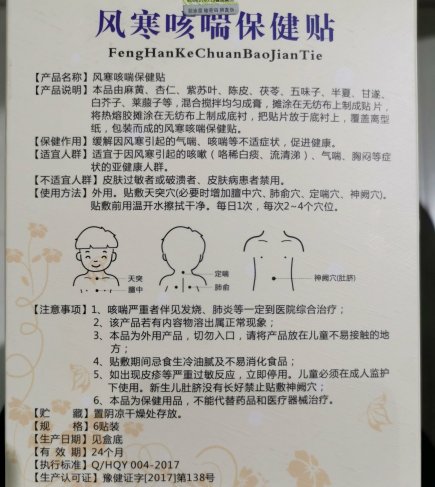 风寒咳喘保健贴
FengHanKeChuanBaoJianTie
【产品名称】风寒咳喘保健贴
【产品说明】本品由麻黄、杏仁、紫苏叶、陈皮、茯苓、五味子、半夏、甘遂、
白芥子、莱菔子等，混合搅拌均匀成膏，摊涂在无纺布上制成贴片，
将热熔胶摊涂在无纺布上制成底衬，把贴片放于底衬上，覆盖离型
纸，包装而成的风寒咳喘保健贴。
【保健作用】缓解因风寒引起的气喘、咳喘等不适症状，促进健康。
【适宜人群】适宜于因风寒引起的咳嗽（咯稀白痰、流清涕）、气喘、胸闷等症
状的亚健康人群。
【不适宜人群】皮肤过敏者或破溃者、皮肤病患者禁用。
【使用方法】外用。贴敷天突穴(必要时增加膻中穴、肺俞穴、定喘穴、神阙穴)。
贴敷前用温开水擦拭干净。每日1次，每次2~4个穴位。
天突
膻中
定喘
肺俞
神阙穴(肚脐)
【注意事项】1、咳喘严重者伴见发烧、肺炎等一定到医院综合治疗；
2、该产品若有内容物溶出属正常现象；
3、本品为外用产品，切勿入口，请将产品放在儿童不易接触的地
方；
4、贴敷期间忌食生冷油腻及不易消化食品；
5、如出现皮疹等严重过敏反应，立即停用。儿童必须在成人监护
下使用。新生儿肚脐没有长好禁止贴敷神阙穴；
6、本品为保健用品，不能代替药品和医疗器械治疗。
【贮 藏】置阴凉干燥处存放。
【规 格】6贴装
【生产日期】见盒底
【有 效 期】24个月
【执行标准】Q/HQY 004-2017
【生产许可证】豫健证字[2017]第138号